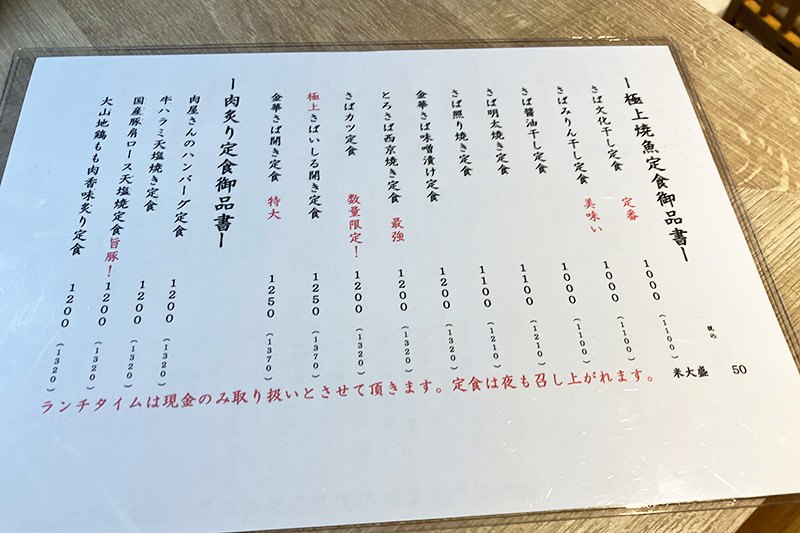 ー極上焼魚定食御品書ー
さば文化干し定食 定番 1000 (1100) 税込
さばみりん干し定食 美味い 1000 (1100)
さば醤油干し定食 1000 (1100)
さば明太焼き定食 1100 (1210)
さば照り焼き定食 1100 (1210)
金華さば味噌漬け定食 1200 (1320)
とろさば西京焼き定食 最強 1200 (1320)
さばカツ定食 数量限定! 1200 (1320)
極上さばいしる開き定食 1250 (1370)
金華さば開き定食 特大 1250 (1370)
ー肉炙り定食御品書ー
肉屋さんのハンバーグ定食 1200 (1320)
牛ハラミ天塩焼き定食 1200 (1320)
国産豚肩ロース天塩焼定食旨豚! 1200 (1320)
大山地鶏もも肉香味炙り定食 1200 (1320)
米大盛 50
ランチタイムは現金のみ取り扱いとさせて頂きます。定食は夜も召し上がれます。